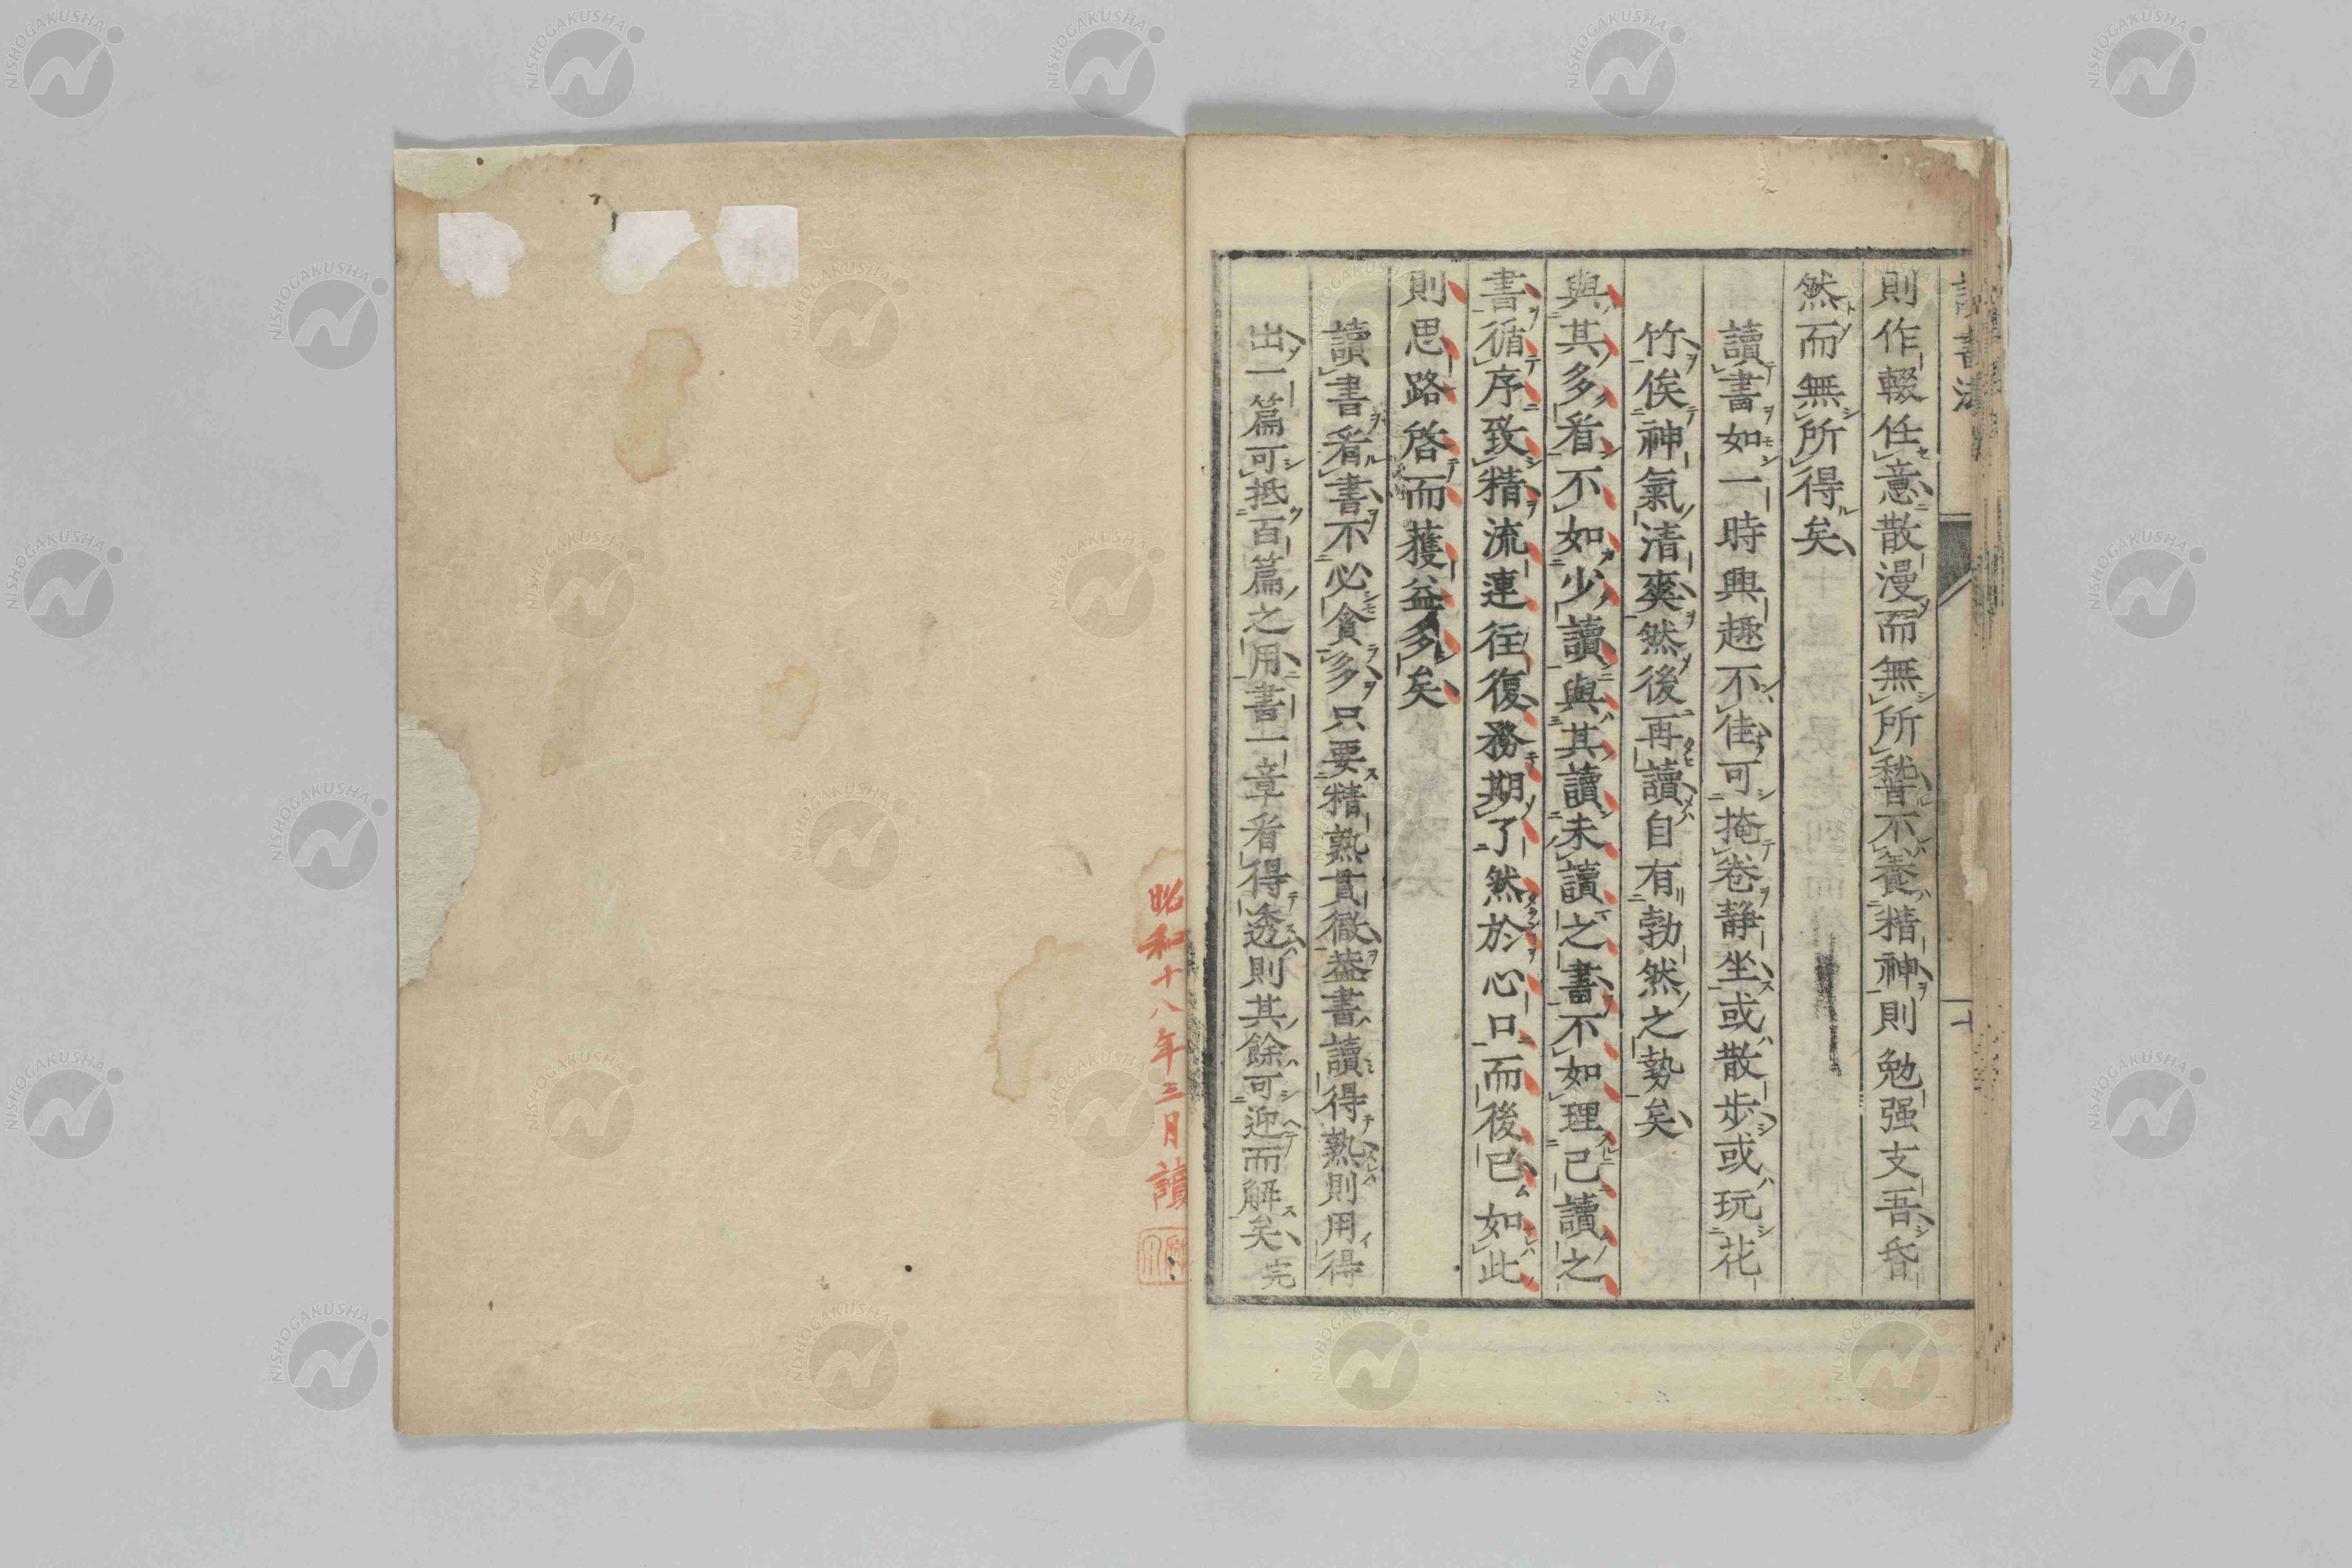 讀書法
十
則作輟任意散漫而無所稽不養精神則勉强支吾昏
然而無所得矣
讀書如一時興趣不佳可掩卷靜坐或散步或玩花
竹俟神氣清爽然後再讀自有勃然之勢矣
與其多看不如少讀與其讀未讀之書不如理已讀之
書循序致精流連往復務期了然於心口而後已如此
則思路啓而獲益多矣
讀書看書不必貪多只要精熟貫徹葢書讀得熟則用得
出一篇可抵百篇之用書一章看得透則其餘可迎而解矣完
昭和十八年三月讀
NISHOGAKUSHA